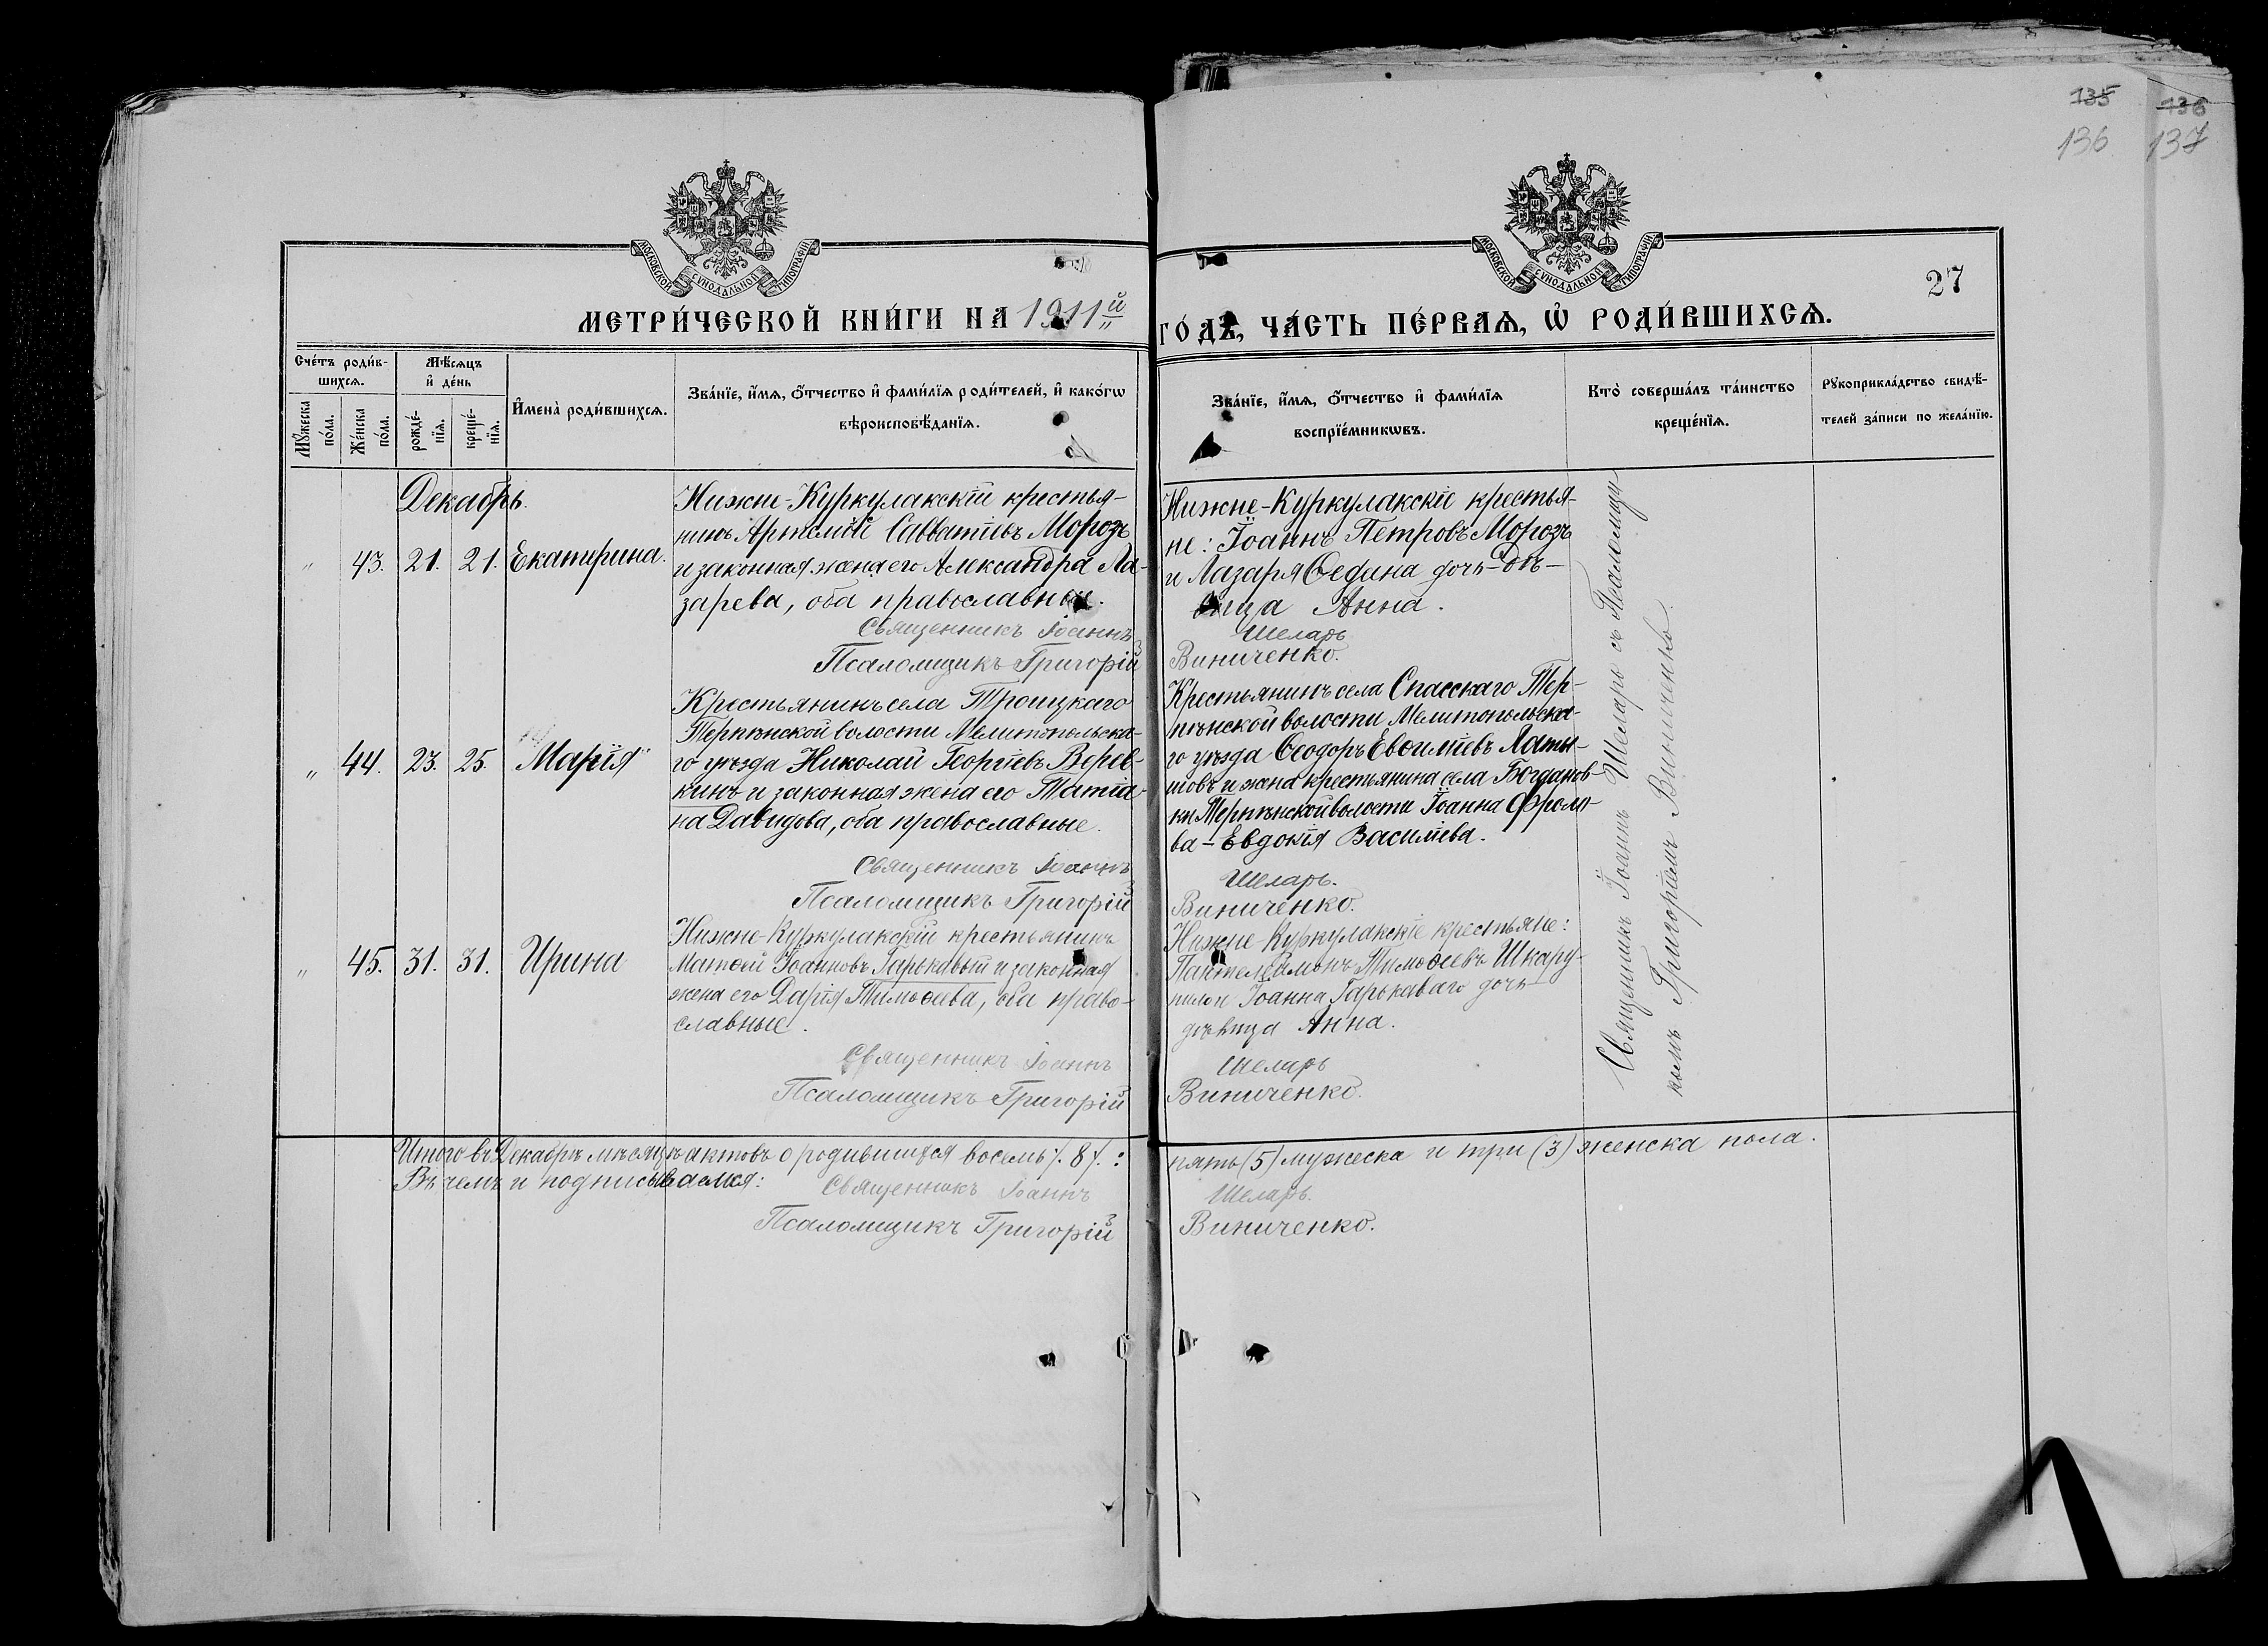 135 136
136 137
МОСКОВСКОЙ СѴНОДАЛЬНОЙ ТИПОГРАФІИ
МОСКОВСКОЙ СѴНОДАЛЬНОЙ ТИПОГРАФІИ
27
МЕТРИ́ЧЕСКОЙ КНИ́ГИ НА 1911й
ГО́ДЪ, ЧА́СТЬ ПЕ́РВАѦ, Ѡ҆ РОДИ́ВШИХСѦ.
Сче́тъ роди́в-
шихсѧ.
Мꙋ́жеска по́ла.
Же́нска по́ла.
Мѣ́сѧцъ
и҆ де́нь
рожде́-нїѧ.
креще́-нїѧ.
И҆мена̀ роди́вшихсѧ.
Зва́нїе, и҆́мѧ, ѻ҆́тчество и҆ фами́лїѧ роди́телей, и҆ како́гѡ
вѣроисповѣ́данїѧ.
Зва́нїе, и҆́мѧ, ѻ҆́тчество и҆ фами́лїѧ
воспрїе́мникѡвъ.
Кто̀ соверша́лъ та́инство
креще́нїѧ.
Рꙋкоприкла́дство свидѣ́-
телей за́писи по жела́нїю.
Декабрь.
" 43. 21. 21. Екатерина.
Нижне-Куркулакскій крестья-
нинъ Артемій Савватіевъ Морозъ
и законная жена его Александра Ла-
зарева, оба православные.
Священникъ Іоаннъ
Псаломщикъ Григорій
Нижне-Куркулакскіе крестья-
не: Іоаннъ Петровъ Морозъ
и Лазаря Ѳедина дочь-дѣ-
вица Анна.
Шеларь
Виниченко.
" 44. 23. 25. Марія
Крестьянинъ села Троицкаго
Терпѣнской волости Мелитопольска-
го уѣзда Николай Георгіевъ Верев-
кинъ и законная жена его Татіа-
на Давидова, оба православные.
Священникъ Іоаннъ
Псаломщикъ Григорій
Крестьянинъ села Спасскаго Тер-
пѣнской волости Мелитопольска-
го уѣзда Ѳеодоръ Евѳиміевъ Латы-
шовъ и жена крестьянина села Богданов-
ки Терпѣнской волости Іоанна Фроло-
ва - Евдокія Василіева.
Шеларь.
Виниченко.
" 45. 31. 31. Ирина
Нижне-Куркулакскій крестьянинъ
Матѳей Іоанновъ Гарькавый и законная
жена его Дарія Тимоѳеева, оба право-
славные.
Священникъ Іоаннъ
Псаломщикъ Григорій
Нижне Куркулакскіе крестьяне:
Пантелеимонъ Тимоѳеевъ Шкару-
пило и Іоанна Гарькаваго дочь
дѣвица Анна.
Шеларь
Виниченко.
Священникъ Іоаннъ Шеларь съ Псаломщи-
комъ Григоріемъ Виниченко.
Итого въ Декабрѣ мѣсяцѣ актовъ о родившихся восемь /. 8 /. :
пять (5) мужеска и три (3) женска пола.
Въ чемъ и подписываемся:
Священникъ Іоаннъ Шеларь.
Псаломщикъ Григорій Виниченко.